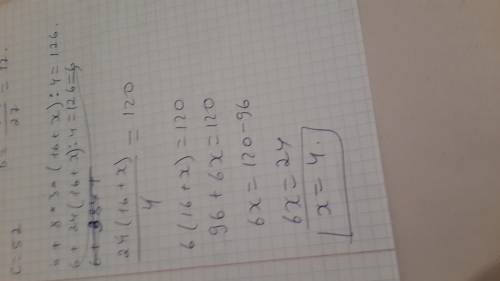 = 12.
27
c = 52
6 + 8 * 3 (16 + x) : 4 = 126.
6 + 24 (16 + x) : 4 = 126 = 6
24 (16 + x)
4
= 120
6 (16 + x) = 120
96 + 6x = 120
6x = 120 - 96
6x = 24
x = 4.